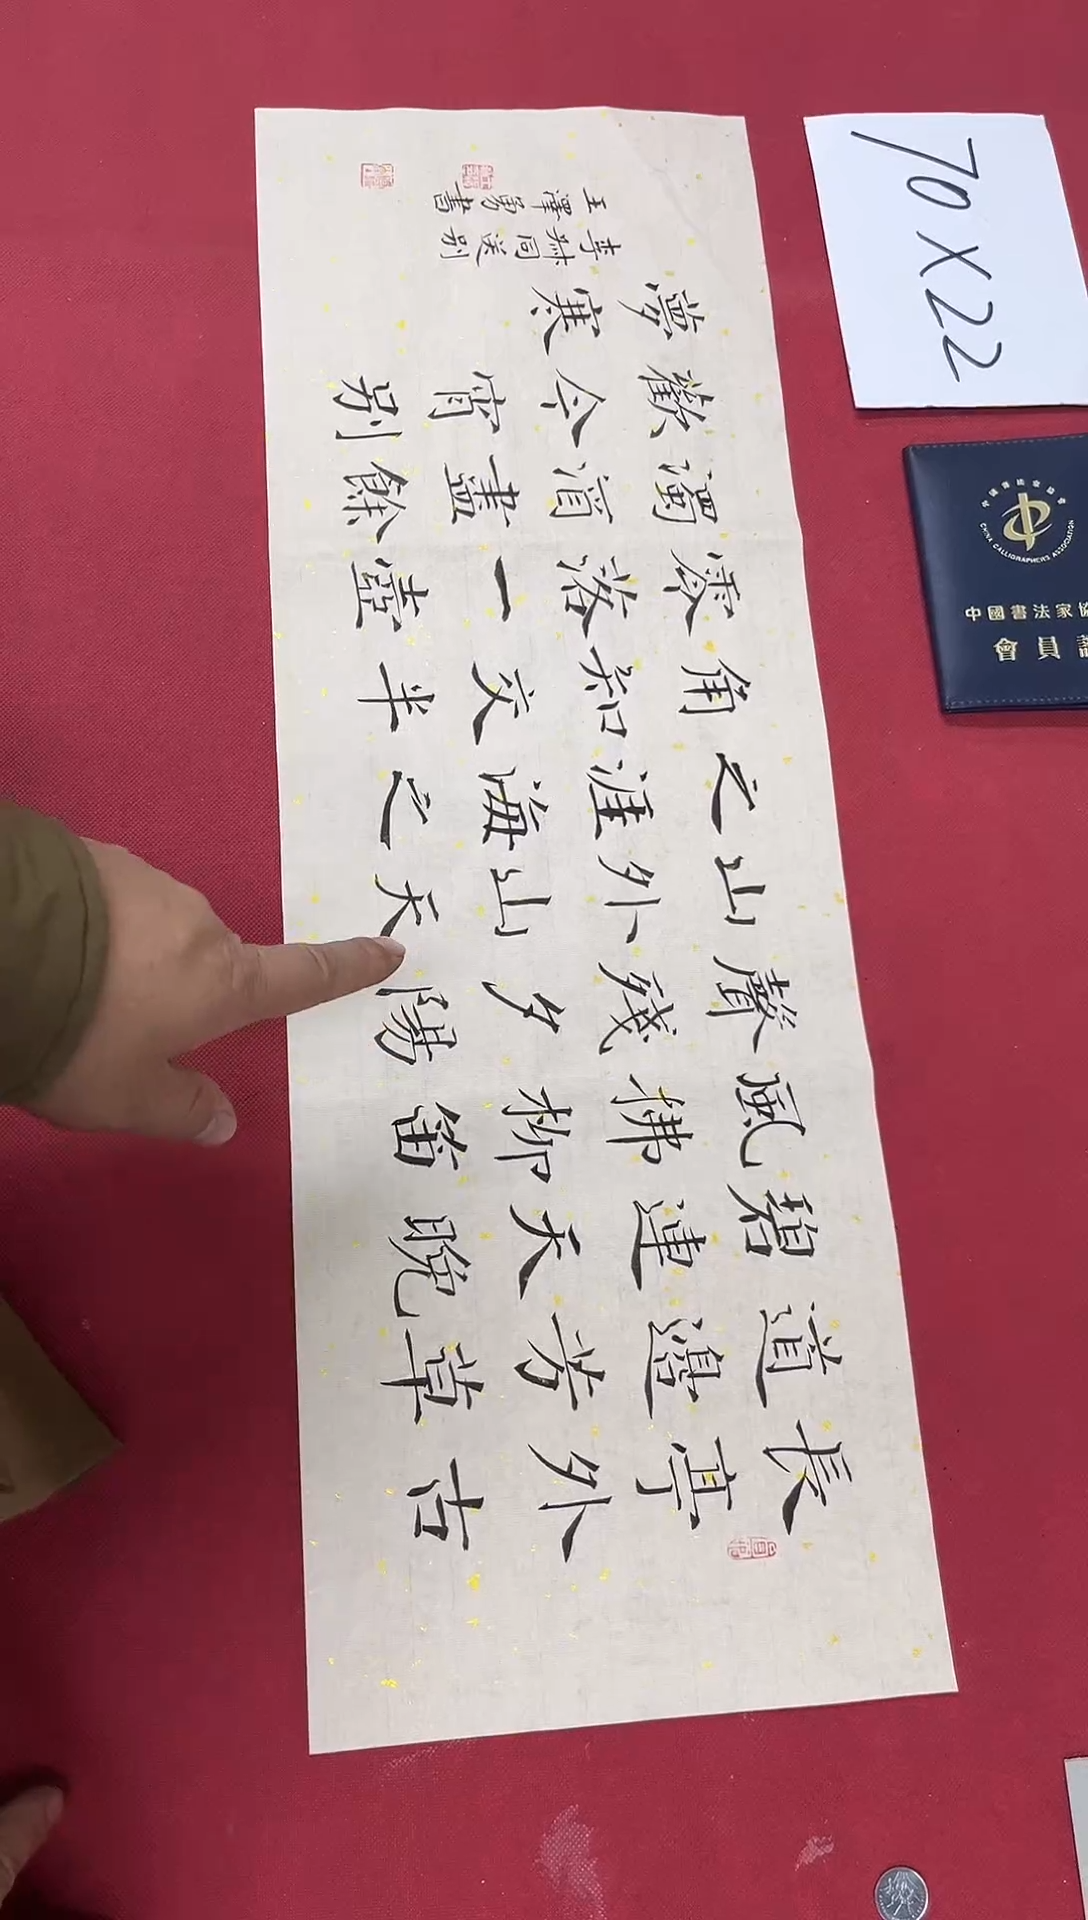 長亭外古
道邊芳草
碧連天晚
風拂柳笛
聲殘夕陽
山外山天
之涯海之
角知交半
零落一壺
濁酒盡餘
歡今宵別
夢寒
李叔同送別
王澤勇書
70×22
CHINA CALLIGRAPHERS ASSOCIATION
中國書法家
會員